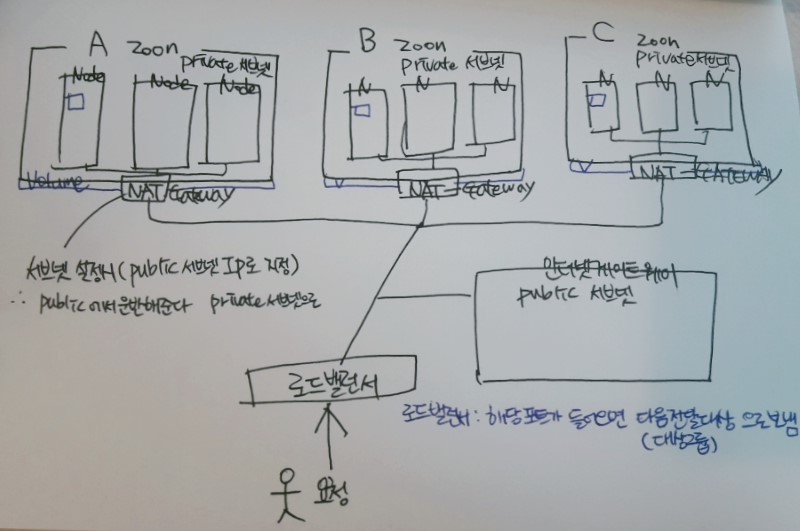 A zoon
private 서브넷
Node Node Node
Volume
NAT Gateway
B zoon
private 서브넷
N N N
V
NAT Gateway
C zoon
private 서브넷
N N N
V
NAT GATEWAY
서브넷 설정시 (public 서브넷 IP로 지정)
∴ public에서 운반해준다 private 서브넷으로
인터넷 게이트웨이
public 서브넷
로드밸런서
로드밸런서 : 해당포트가 들어오면 다음전달대상 으로보냄
(대상그룹)
요청